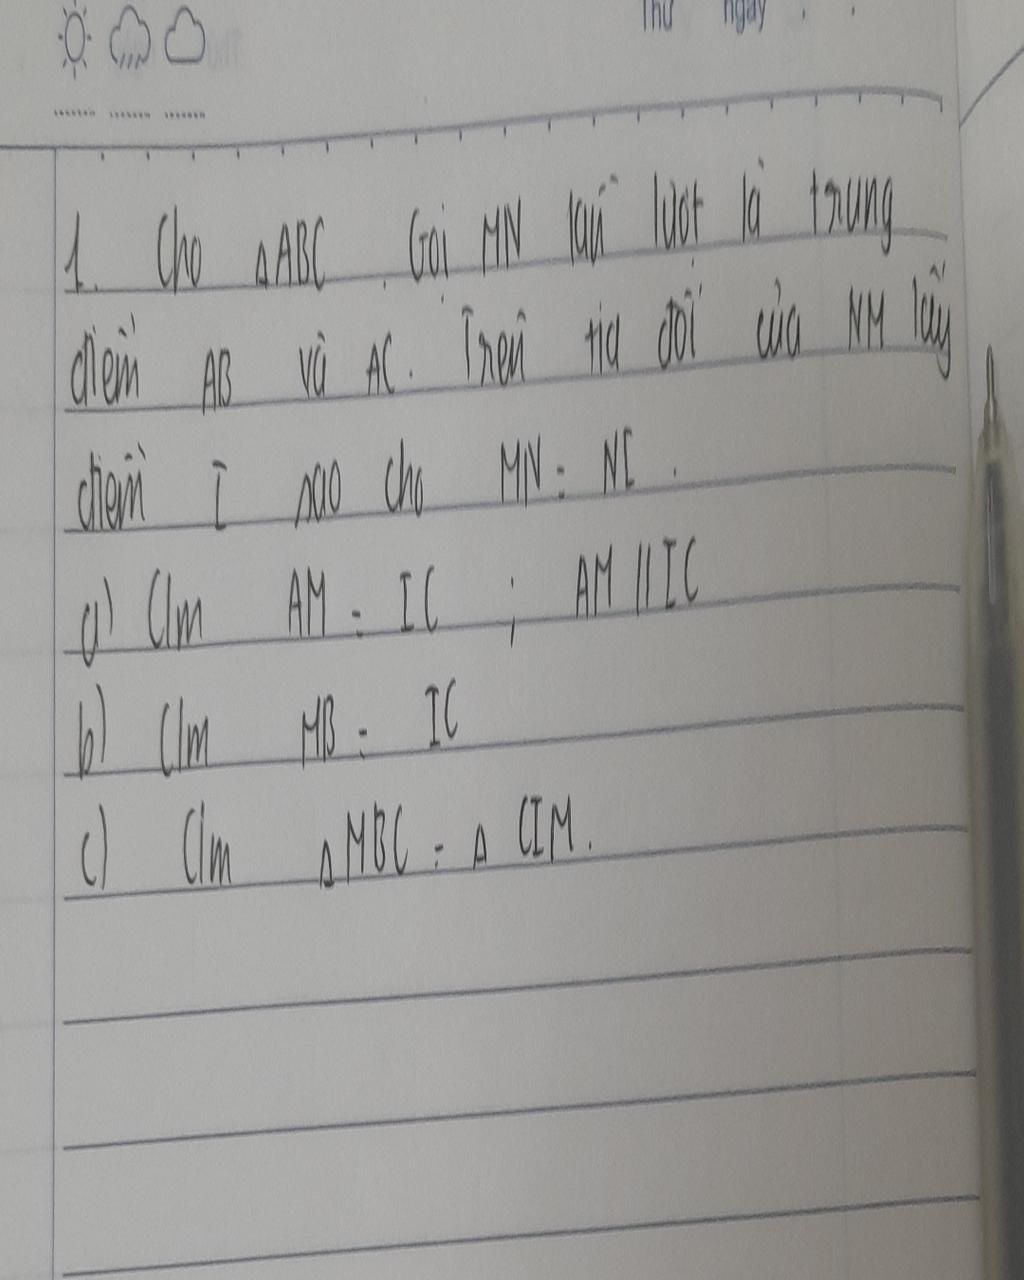 Thứ ngày . .
1. Cho ΔABC. Gọi MN lần lượt là trung
điểm AB và AC. Trên tia đối của NM lấy
điểm I sao cho MN = NI.
a) C/m AM = IC ; AM // IC
b) C/m MB = IC
c) C/m Δ MBC = Δ CIM.